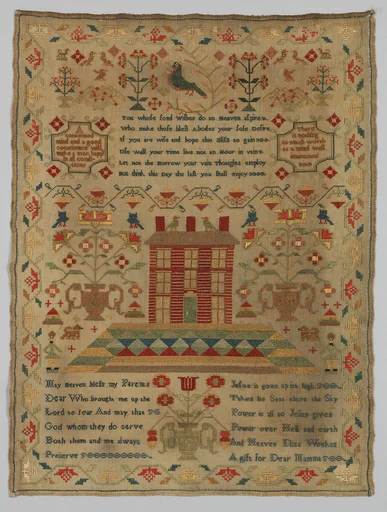 You whose fond Wishes do to Heaven aspire
Who make those blest Abodes your sole Desire
If you are wife and hope that Bliss to gain
Use well your Time live not an Hour in vain
Let not the Morrow your vain Thoughts employ
But think this Day the last you shall enjoy
A
contented
mind and a good
conscience will
make a man happy
in all condi
tions
There
is nothing
so much worth
as a mind well
instructed
May heaven bless my Parents
Dear Who brought me up the
Lord to fear And may that
God whom they do serve
Both them and me always
Preserve
Jesus is gone up on high
Takes his Seat above the Sky
Power is all to Jesus given
Power over Hell and earth
And Heaven Eliza
A gift for Dear Mamma